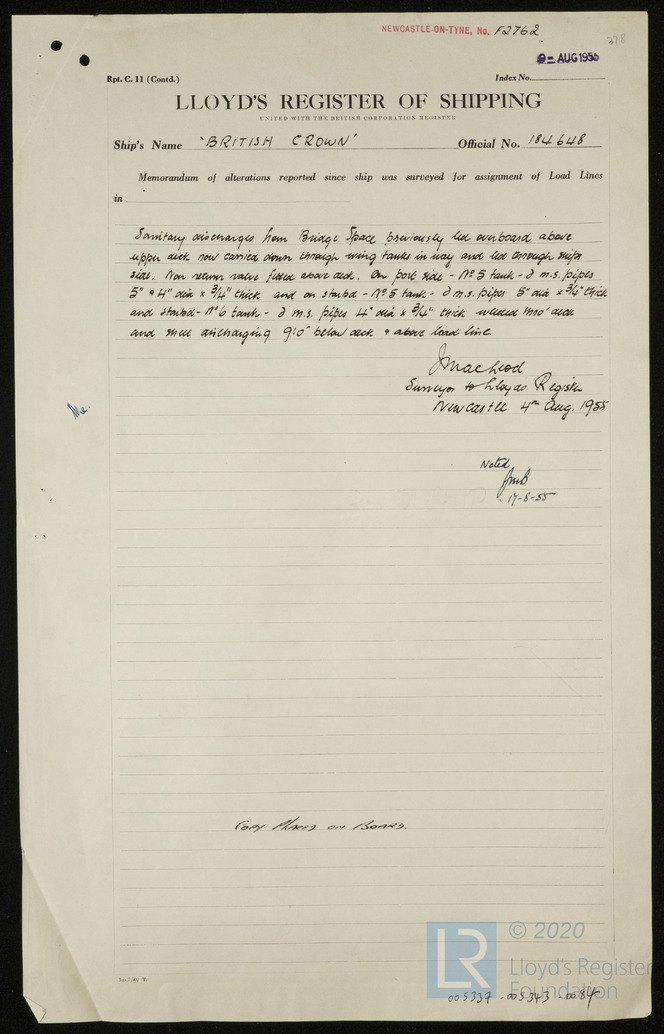 NEWCASTLE-ON-TYNE, No. F2762
378
9 - AUG 1955
Rpt. C. 11 (Contd.)
Index No.
LLOYD'S REGISTER OF SHIPPING
UNITED WITH THE BRITISH CORPORATION REGISTER
Ship's Name 'BRITISH CROWN' Official No. 184648
Memorandum of alterations reported since ship was surveyed for assignment of Load Lines
in
Sanitary discharges from Bridge Space previously led overboard above
upper deck now carried down through wing tanks in way and led through ships
side. Non return valve fitted above deck. On port side - No 5 tank - 2 m.s. pipes
5" & 4" dia x 3/4" thick and on starbd - No 5 tank - 2 m.s. pipes 5" dia x 3/4" thick
and starbd - No 6 tank - 2 m.s. pipes 4" dia x 3/4" thick welded thro' deck
and shell discharging 9'.0" below deck & above load line
J MacLeod
Surveyor to Lloyds Register
Newcastle 4th Aug. 1955
Noted
17-8-55
COPY PLACED ON BOARD.
LR
© 2020
Lloyd's Register
Foundation
005337-005343-0084